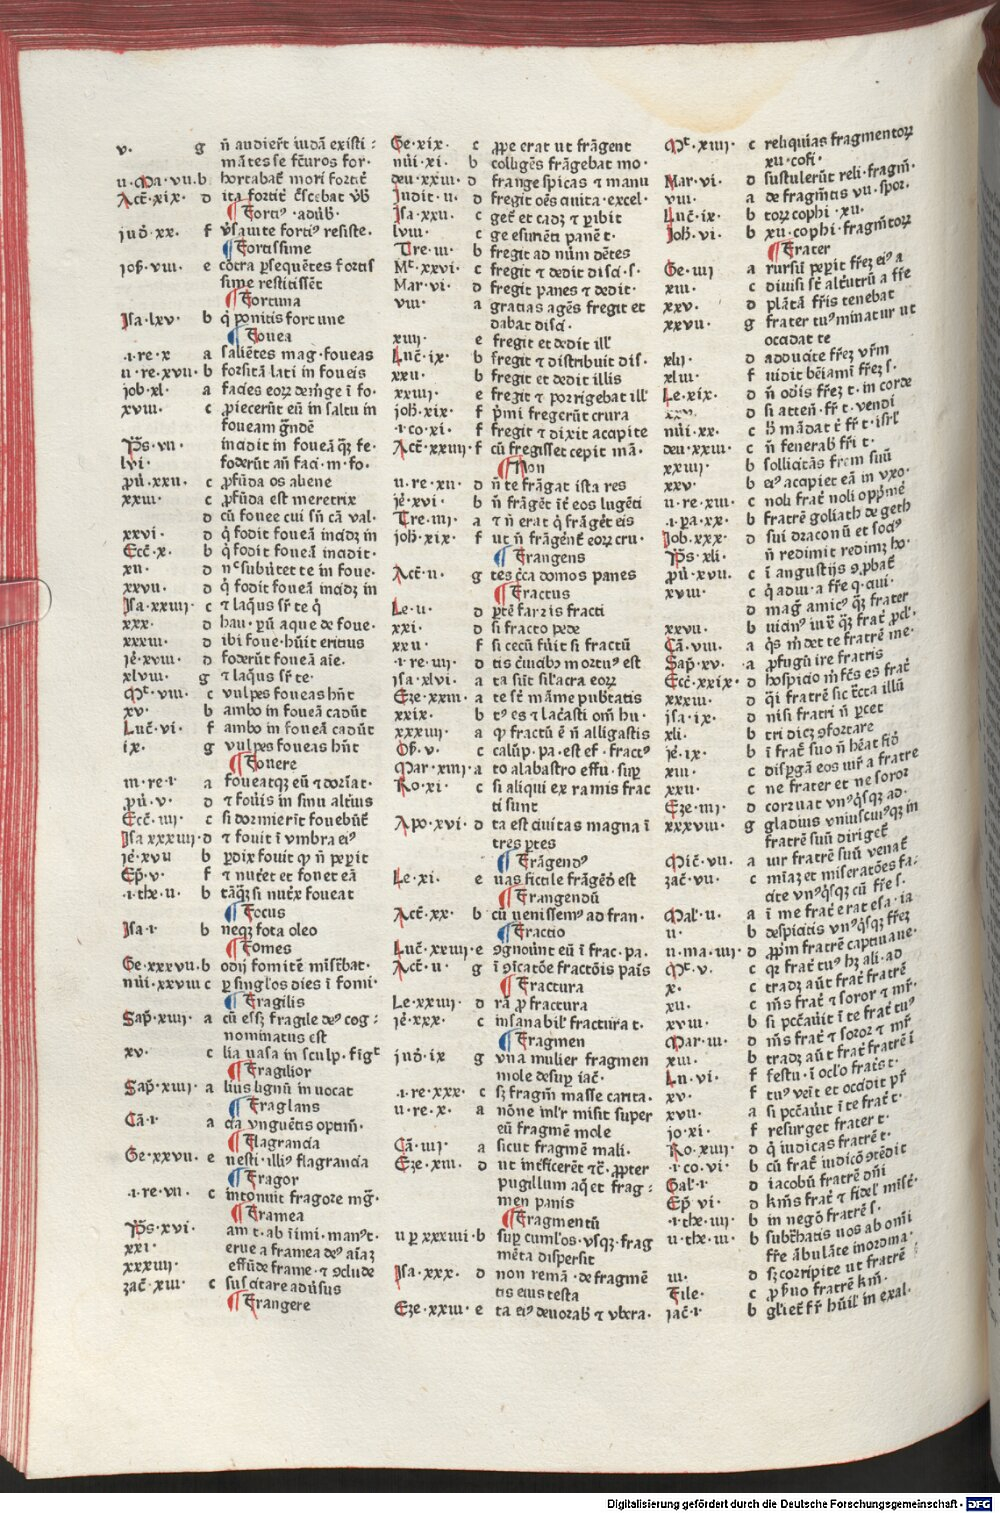 v. g n̄ audieȓt iudā existi:
mātes se ft̄uros for.
u.Ma.vii.b hortabat̄ mori fortit̄
Act̄.xix. d ita fortit̄ cͦscebat v̄b
¶ Forti⁹.adūb.
iud̄.xx. f v̄sauite forti⁹ resiste.
¶ Fortissime
iob.viii. e cōtra ꝑsequētes fortis
sime restitissēt
¶ Fortuna
Isa.lxv. b q̇ ponitis fortune
¶ Fouea
.i.re.x a saliētes mag.foueas
ii.re.xvii.b forsitā lati in foueis
iob.xl. a facies eoꝝ
xviii. c ꝓiecerūt eū in saltu in
foueam
Ps̄.vii. incidit in foueā q̄ꝫ fe.
lvi. foderūt añ faci.m.fo.
ꝓu̇.xxii. c ꝓfūda os aliene
xxiii. c ꝓfūda est meretrix
d cū fouee cui sn̄ cā val.
xxvi. d q̇ fodit foueā incidꝫ in
Ecc̄.x. b q̇ fodit foueā incidit.
xii. d
xxvii. d q̇ fodit foueā incidꝫ in
Isa.xxiiii. c ⁊ laq̄us sr̄ te q̇
xxx. d hau.ꝑū aque de foue.
xxxiii. d ibi foue.hūit ericius
ie̊.xviii. d foderūt foueā aīe.
xlviii. g ⁊ laq̄us sr̄ te.
Mt̄.viii. c vulpes foueas hn̄t
xv. b ambo in foueā cadūt
Luc̄.vi. f ambo in foueā cadūt
ix. g vulpes foueas hn̄t
¶ Fouere
iii.re.i a foueatqꝫ eū ⁊ dorīat.
ꝓu̇.v. d ⁊ fouēis in sinu alt̄ius
Ecc̄.iiii. c si dormierīt fouebūt̄
Isa xxxiiii.d ⁊ fouit ī vmbra ei⁹
ie̊.xvii b ꝑdix fouit q n̄ peꝑit
Ep̄.v. f ⁊ nut̄et et fouet eā
.i.the.ii. b tāq̄ꝫ si nut̄x foueat
¶ Focus
Isa.i. b neqꝫ fota oleo
¶ Fomes
Ge.xxxvii.b odij fomitē mīsēbat.
nūi.xxviii c ꝑ singl̄os dies ī fomi.
¶ Fragilis
Sap̄.xiiii. a cū essꝫ fragile de⁹ cog:
nominatus est
xv. c lia uasa in sculp.
¶ Fragilior
Sap̄.xiiii. a lius lignū in uocat
¶ Fraglans
Cā.i. a cia vnguētis optim̄.
¶ Flagrancia
Ge.xxvii. e uesti.illi⁹ flagrancia
¶ Fragor
.i.re.vii. c intonuit fragore mg̅.
¶ Framea
Ps̄.xvi. am t.ab īimi.man⁹t.
xxi. erue a framea de⁹ aīaꝫ
xxxiiii. effūde frame.⁊ ꝯclude
zac̄.xiii. c suscitare adūsus
¶ Frangere
Ge.xix. c ꝓpe erat ut frāgent
nūi.xi. b colligēs frāgebat mo.
deu.xxiii. d frange spicas ⁊ manu
Iudit.ii. d fregit oēs ciuita.excel.
Isa.xxii. c get̄ et cadꝫ ⁊ ꝑibit
lviii. c ge esuriēti panē t.
Tre.iii. b fregit ad nūm dētes
Mt̄.xxvi. c fregit ⁊ dedit disci.s.
Mar.vi. d fregit panes ⁊ dedit.
viii. a gracias agēs fregit et
dabat disci.
xiiii. e fregit et dedit ill̄
Luc̄.ix. b fregit ⁊ distribuit dis.
xxii. b fregit et dedit illis
xxiiii. e fregit ⁊ porrigebat ill̄
ioh̄.xix. f p̄mi fregerūt crura
i.co.xi. f fregit ⁊ dixit accipite
Act̄.xxviii.f cū fregisset cepit mā.
¶ Non
ii.re.xii. d n̄ te frāgat ista res
ie̊.xvi. b n̄ frāgēt īt̄ eos lugēti
Tre.iiii. a ⁊ n̄ erat q̇ frāgēt̄ eis
ioh̄.xix. f ut n̄ frāgēnt̄ eoꝝ cru.
¶ Frangens
Act̄.ii. g tes c̄ca domos panes
¶ Fractus
Le.ii. d ꝑtē farris fracti
xxi. d si fracto pede
xxii. f si cecū fūit si fractū
.i.re.iiii. d tis c̄uicib⁹ mortu⁹ est
isa.xlvi. a ta sūt sil̄acra eoꝝ
Eze.xxiii. a te st̄ māme pubtatis
xxix. b t⁹ es ⁊ lac̄asti om̄ hu.
xxxiiii. a q fractū ē n̄ alligastis
Ob̄.v. c calūp.pa.est ef.fract⁹
Mar.xiiii.a to alabastro effu.suꝑ
Ro.xi. c si aliqui ex ramis frac
ti sunt
Apo.xvi. d ta est ciuitas magna ī
tres ꝑtes
¶ Frāgend⁹
Le.xi. e uas fictile frāgēdū est
¶ Frangendū
Act̄.xx. b cū uenissem⁹ ad fran.
¶ Fractio
Luc̄.xxiiii.e ꝯgnoūnt eū ī frac.pa.
Act̄.ii. g ī ꝯīcatōe fractōis pais
¶ Fractura
Le.xxiiii. d rā ꝓ fractura
ie̊.xxx. c insanabil̄ fractura t.
¶ Fragmen
iud̄.ix g vna mulier fragmen
mole desuꝑ iac̄.
.i.re.xxx. c sꝫ fragm̄ masse carita.
ii.re.x. a nōne ml̄r misit super
eū fragmē mole
Cā.iiii a sicut fragmē mali.
Eze.xiii. d ut int̄ficerēt ⁊c̄.ꝓpter
pugillum aq̄t et frag:
men panis
¶ Fragmentū
ii ꝑ xxxiiii.b suꝑ cumi̇os.vsqꝫ.frag
mēta dispersit
Isa.xxx. d non remā.de fragmē
tis eius testa
Eze.xxiii. e ta ei⁹ deuorab̄ ⁊ vbera.
Mt̄.xiiii. c reliquias fragmentoꝝ
xii cofi.
Mar.vi. d sustulerūt reli.fragm̄.
viii. a de fragm̄tis vii.spor.
Luc̄.ix. b toꝝ cophi.xii.
Joh̄.vi. b xii.cophi.fragm̄toꝝ
¶ Frater
Ge.iiii a rursū peꝑit fr̄eꝫ ei⁹ a
xiii. c diuisi st̄ alt̄utrū a fr̄e
xxv. d plātā fr̄is tenebat
xxvii. g frater tu⁹ minatur ut
occidat te
xlii. d adducite fr̄eꝫ vr̄m
xliii. f uidit bēiami fr̄eꝫ s.
Le.xix. d n̄ od̄is fr̄eꝫ t.in corde
xxv. d si atten̄.fr̄ t.vendi
nūi.xx. c h̄ mādat t̄ fr̄ t.isrl̄
deu.xxiii. c n̄ fenerab̄ fr̄i t.
xxiiii. b sollicitās frēm suū
xxv. b ei⁹ accipiet eā in vxo.
ii.re.xiii. c noli frat̄ noli opp̄mē
.i.pa.xx. b fratrē goliath de geth
Job.xxx. d fui draconū et soci⁹
Ps̄.xli. n̄ redimit redimꝫ ho.
ꝓu̇.xvii. c ī angustijs ꝯꝓbat̄
xviii. c q̇ adiu.a fr̄e q.ciui.
d maḡ amic⁹ q̄ꝫ frater
xxvii. b uicin⁹ iux̄ q̄ꝫ frat̄ ꝓcl̄.
Cā.viii. a q̇s m̄ det te fratrē me.
Sap̄.xv. a ꝓfugū ire fratris
Ecc̄.xxix. d hospicio m̄ fc̄s es frat̄
xxxiii. d q̄i fratrē sic t̄cta illū
isa.ix. d nisi fratri n̄ ꝑcet
xli. b tri dicꝫ ꝯfortare
ie̊.ix. b ī frat̄ suo n̄ hēat fid̄
xiii. c disꝑgā eos uir̄ a fratre
xxii. c ne frater et ne soror
Eze.iiii. d corruat vn⁹q̇sqꝫ ad.
xxxviii. g gladius vniuscui⁹qꝫ in
fratrē suū diriget̄
Mic̄.vii. a uir fratrē suū venat̄
zac̄.vii. c mīaꝫ et miseratōes fa.
cite vn⁹q̇sqꝫ cū fr̄e s.
Mal̄.ii. a ī me frat̄ erat esa.ia
ii. b despicitis vn⁹q̇sqꝫ fr̄eꝫ
ii.ma.iiii. d ꝓp̄m fratrē captiuaue.
Mt̄.v. c qꝛ frat̄ tu⁹ hꝫ ali.ad
x. c tradꝫ aūt frat̄ fratrē
xii. c m̄s frat̄ ⁊ soror ⁊ mr̄.
xviii. b si pcc̄auīt ī te frat̄ tu⁹
Mar.iii. d m̄s frat̄ ⁊ soror ⁊ mr̄
xiii. b tradꝫ aūt frat̄ fratrē ī
Lu.vi. f festu.ī ocl̄o frat̄s t.
xv. f tu⁹ veīt et occidit pr̄
xvii. a si pcc̄auīt ī te frat̄ t.
jo.xi. f resurget frater t.
Ro.xiiii. d q̇ iudicas fratrē t.
.i.co.vi. b cū frat̄ iudicō ꝯtēdit
Gal̄.i. d iacobū fratrē dn̄i
Ep̄ vi. d km̄s frat̄ ⁊ fidel̄ mīst̄.
.i.the.iiii. b in negō fratrē s.
ii.the.iii. b subt̄hatis uos ab om̄i
fr̄e ābulāte inordina.
iii. d sꝫ corripite ut fratrē
File. c ꝓ ... uo fratrē km̄.
iac̄.i b gl̄iet̄ fr̄ hūil̄ in exal.
Digitalisierung gefördert durch die Deutsche Forschungsgemeinschaft - DFG